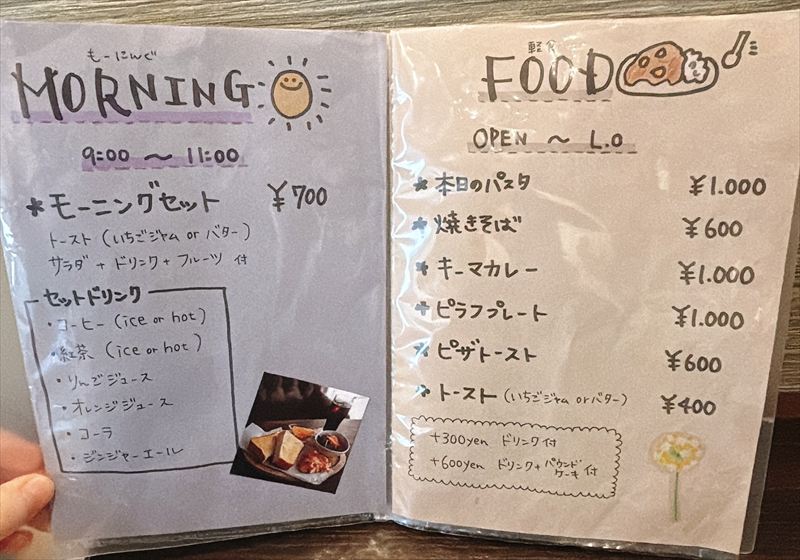 もーにんぐ
MORNING
9:00 〜 11:00
* モーニングセット ¥700
トースト (いちごジャム or バター)
サラダ + ドリンク + フルーツ 付
セットドリンク
・コーヒー (ice or hot)
・紅茶 (ice or hot)
・りんごジュース
・オレンジジュース
・コーラ
・ジンジャーエール
軽食
FOOD
OPEN 〜 L.O
* 本日のパスタ ¥1.000
* 焼きそば ¥600
* キーマカレー ¥1.000
* ピラフプレート ¥1.000
* ピザトースト ¥600
* トースト (いちごジャム orバター) ¥400
+300yen ドリンク付
+600yen ドリンク+パウンドケーキ 付